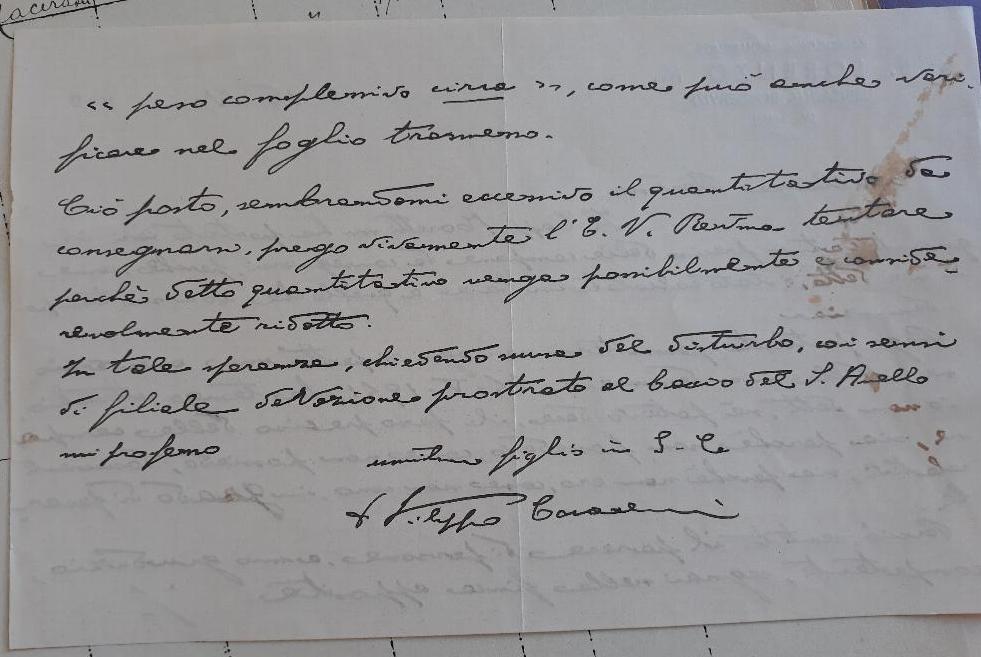 « peso complessivo circa », come può anche veri-
ficare nel foglio trasmesso.
Ciò posto, sembrandomi eccessivo il quantitativo da
consegnarsi, prego vivamente l'E. V. Rev.ma tentare
perchè detto quantitativo venga possibilmente e conside-
revolmente ridotto.
In tale speranza, chiedendo scusa del disturbo, coi sensi
di filiale devozione prostrato al bacio del S. Anello
mi professo
figlio in
+ Filippo